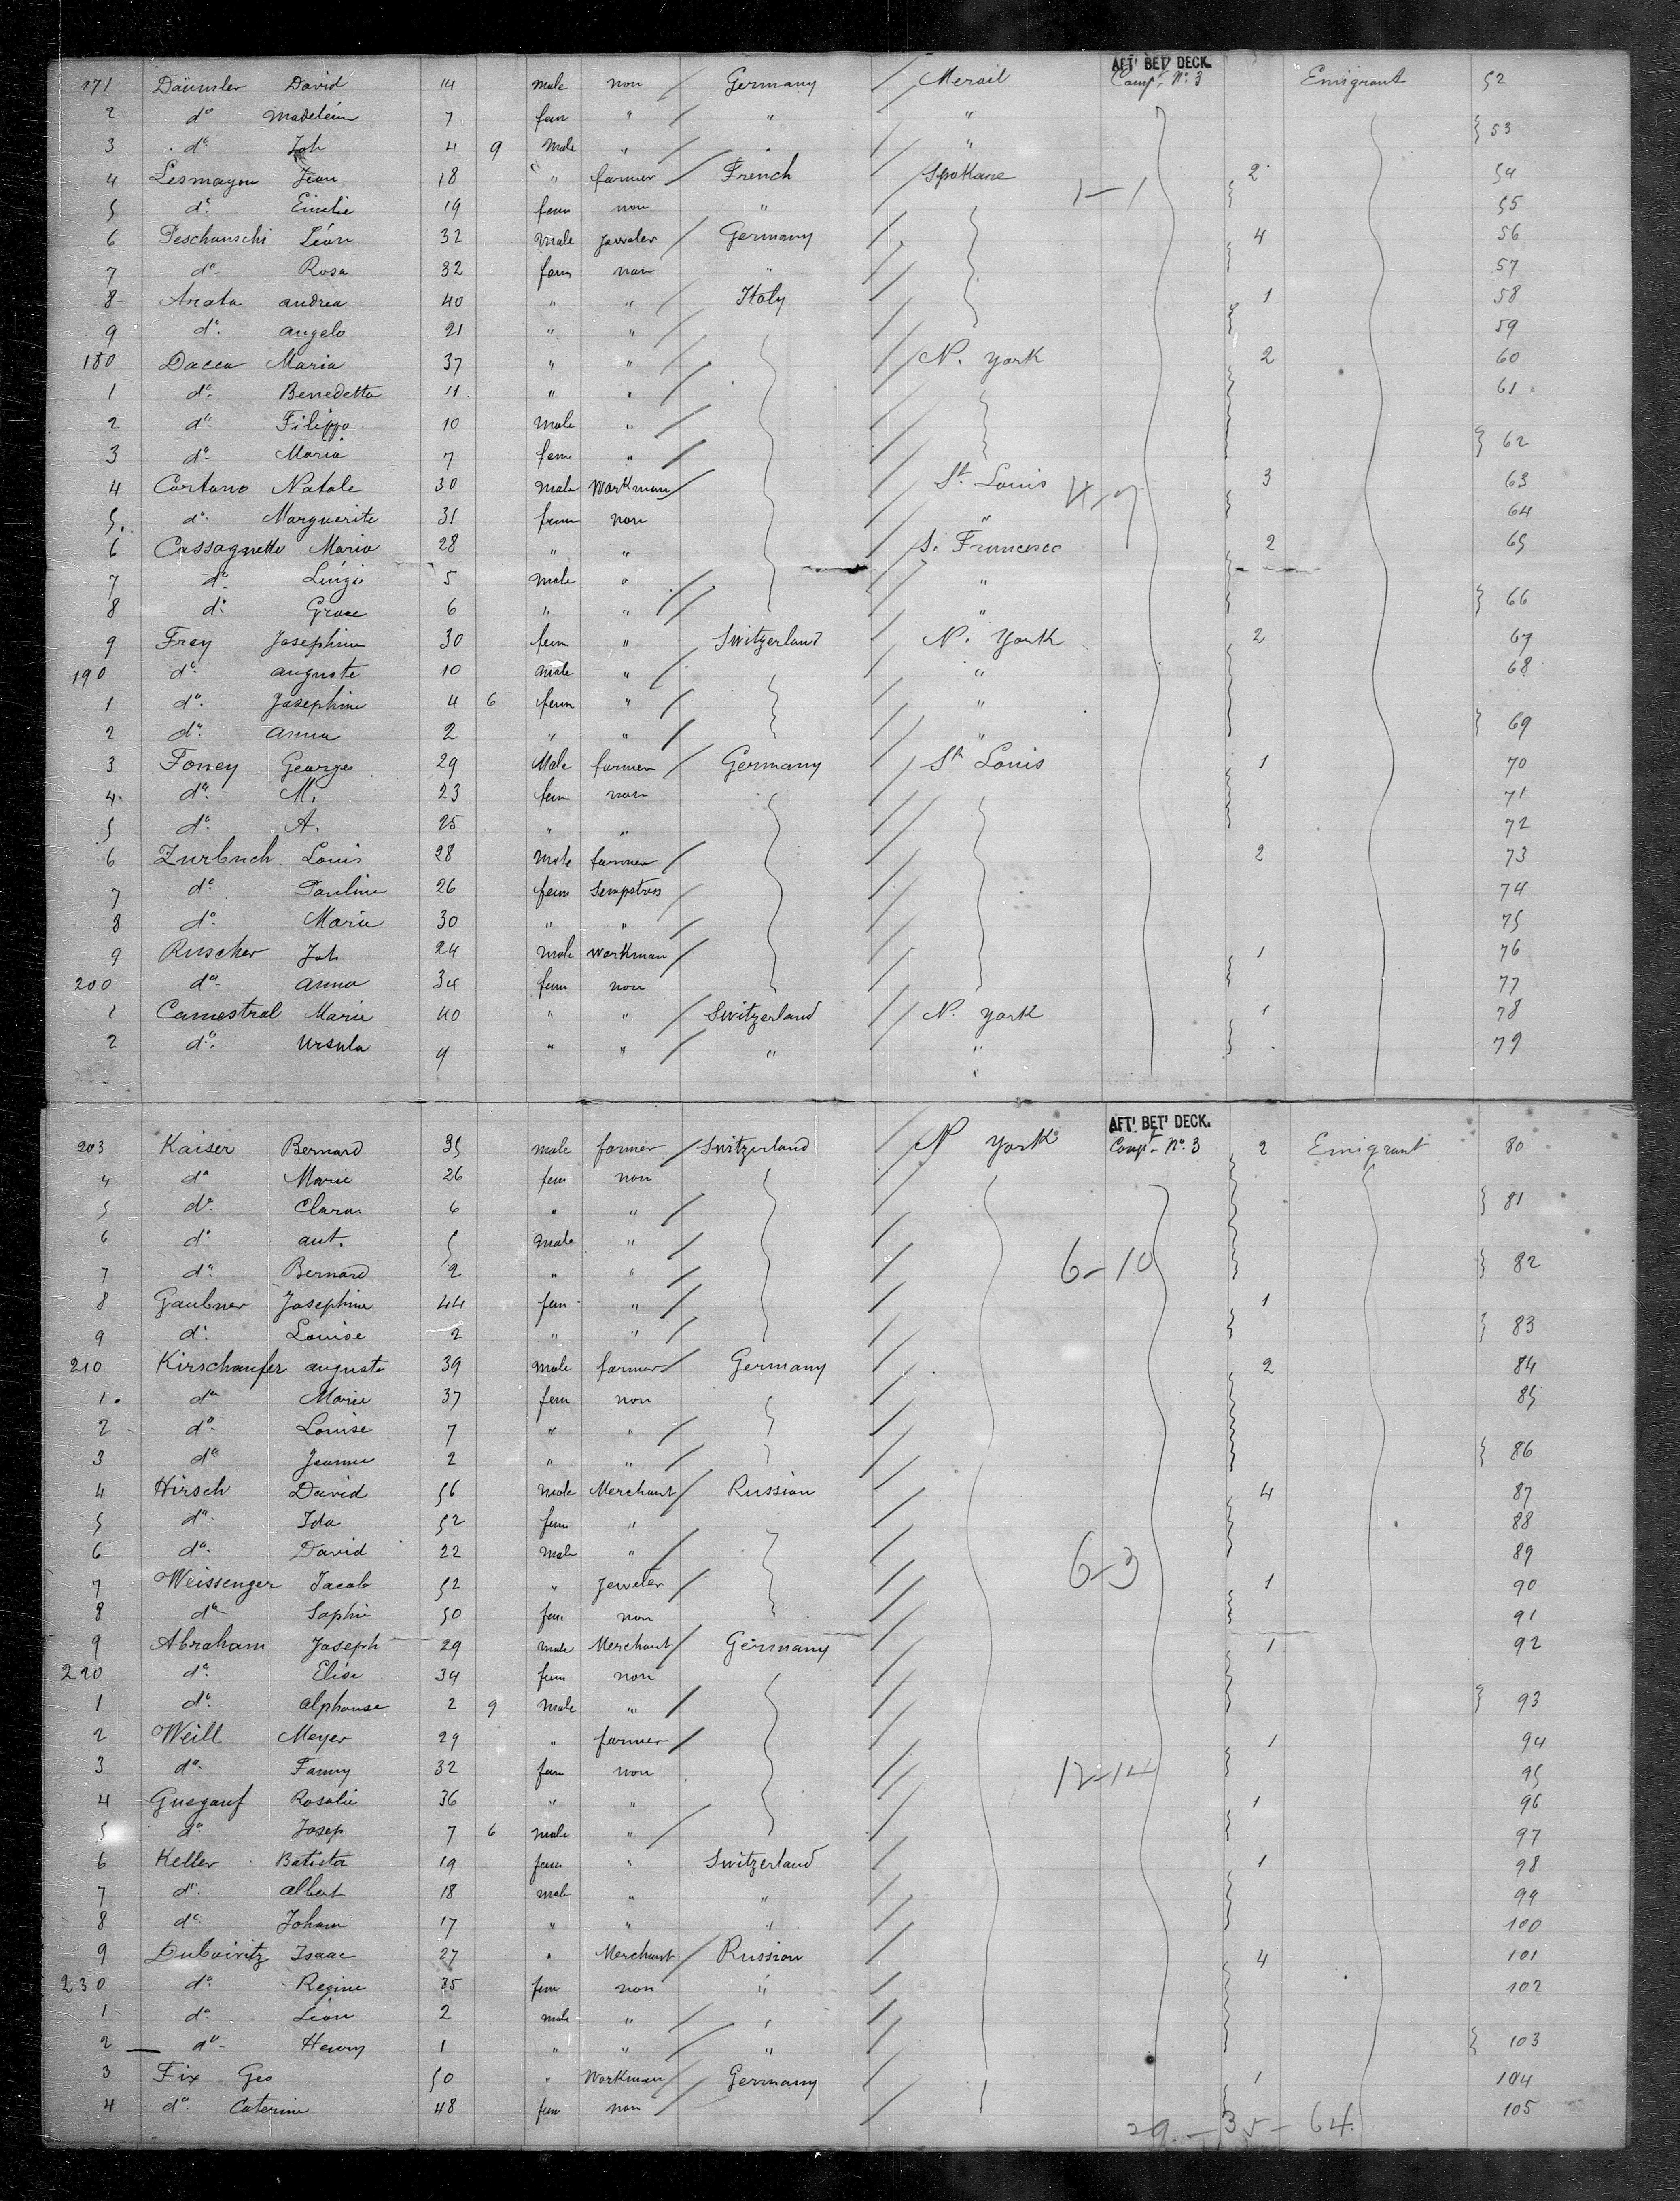 AFT' BET' DECK.
171 Däumler David 14 male non / Germany / Merail Compt. No. 3 Emigrant 52
2 do Madeleine 7 fem " / " / "
3 do Joh 4 9 Male " / " / " } 53
4 Lesmayou Jean 18 " farmer / French / Spokane 2 54
1-1
5 do Emilie 19 fem non " / 55
6 Peschanschi Léon 32 male jeweler / Germany / 4 56
7 do Rosa 32 fem non " / 57
8 Arata andrea 40 " " / Italy / 1 58
9 do angelo 21 " " / / 59
180 Dacca Maria 37 " " / / N. York 2 60
1 do Benedetta 11 " " / / 61
2 do Filippo 10 male " / /
3 do Maria 7 fem " / / } 62
4 Cartano Natale 30 male Workman / / St. Louis 3 63
5. do Marguerite 31 fem non / " 64
6 Cassagnette Maria 28 " " / S. Francesco 2 65
7 do Luigi 5 male " / / "
8 do Grace 6 " " // / " } 66
9 Frey Josephine 30 fem " Switzerland / N. York 2 67
190 do auguste 10 male " / / " 68
1 do Josephine 4 6 fem " / / "
2 do anna 2 " " / / " } 69
3 Foney George 29 Male farmer / Germany / St Louis 1 70
4. do M. 23 fem non / 71
5 do A. 25 " " / 72
6 Zurbuch Louis 28 Male farmer / / 2 73
7 do Pauline 26 fem Sempstres / / 74
8 do Marie 30 " " / / 75
9 Ruscher Joh 24 male workman / / 1 76
200 do anna 34 fem non / 77
1 Camestral Marie 40 " " Switzerland / N. York 1 78
2 do Ursula 9 " " / " / " 79
AFT' BET' DECK.
203 Kaiser Bernard 35 male farmer / Switzerland / N York Compt. No. 3 2 Emigrant 80
4 do Marie 26 fem non /
5 do Clara 6 " " / / } 81
6 do ant. 5 male " / /
6-10
7 do Bernard 2 " " / / } 82
8 Gaubner Josephine 44 fem " / / 1
9 do Louise 2 " " / / } 83
210 Kirschaufer auguste 39 male farmer / Germany / 2 84
1. do Marie 37 fem non / 85
2 do Louise 7 " " / /
3 do Jeanne 2 " " / / } 86
4 Hirsch David 56 male Merchant / Russian / 4 87
5 do Ida 52 fem " / 88
6 do David 22 male " / / 89
6-3
7 Weissenger Jacob 52 " Jeweler / / 1 90
8 do Sophie 50 fem non / 91
9 Abraham Joseph 29 male Merchant / Germany / 1 92
220 do Elise 34 fem non /
1 do alphonse 2 9 Male " / / } 93
2 Weill Meyer 29 " farmer / / 1 94
3 do Fanny 32 fem non / 95
12-14
4 Guegauf Rosalie 36 " " / 1 96
5 do Josep 7 6 male " / / 97
6 Keller Batista 19 fem " Switzerland / 1 98
7 do albert 18 male " " / 99
8 do Johann 17 " " " / 100
9 Duboiritz Isaac 27 " Merchant / Russian / 4 101
230 do Regine 35 fem non " / 102
1 do Léon 2 male " / " /
2 do Henry 1 " " / " / } 103
3 Fix Geo 50 " Workman / Germany / 1 104
4 do Caterine 48 fem non / / 105
29. - 35 - 64.